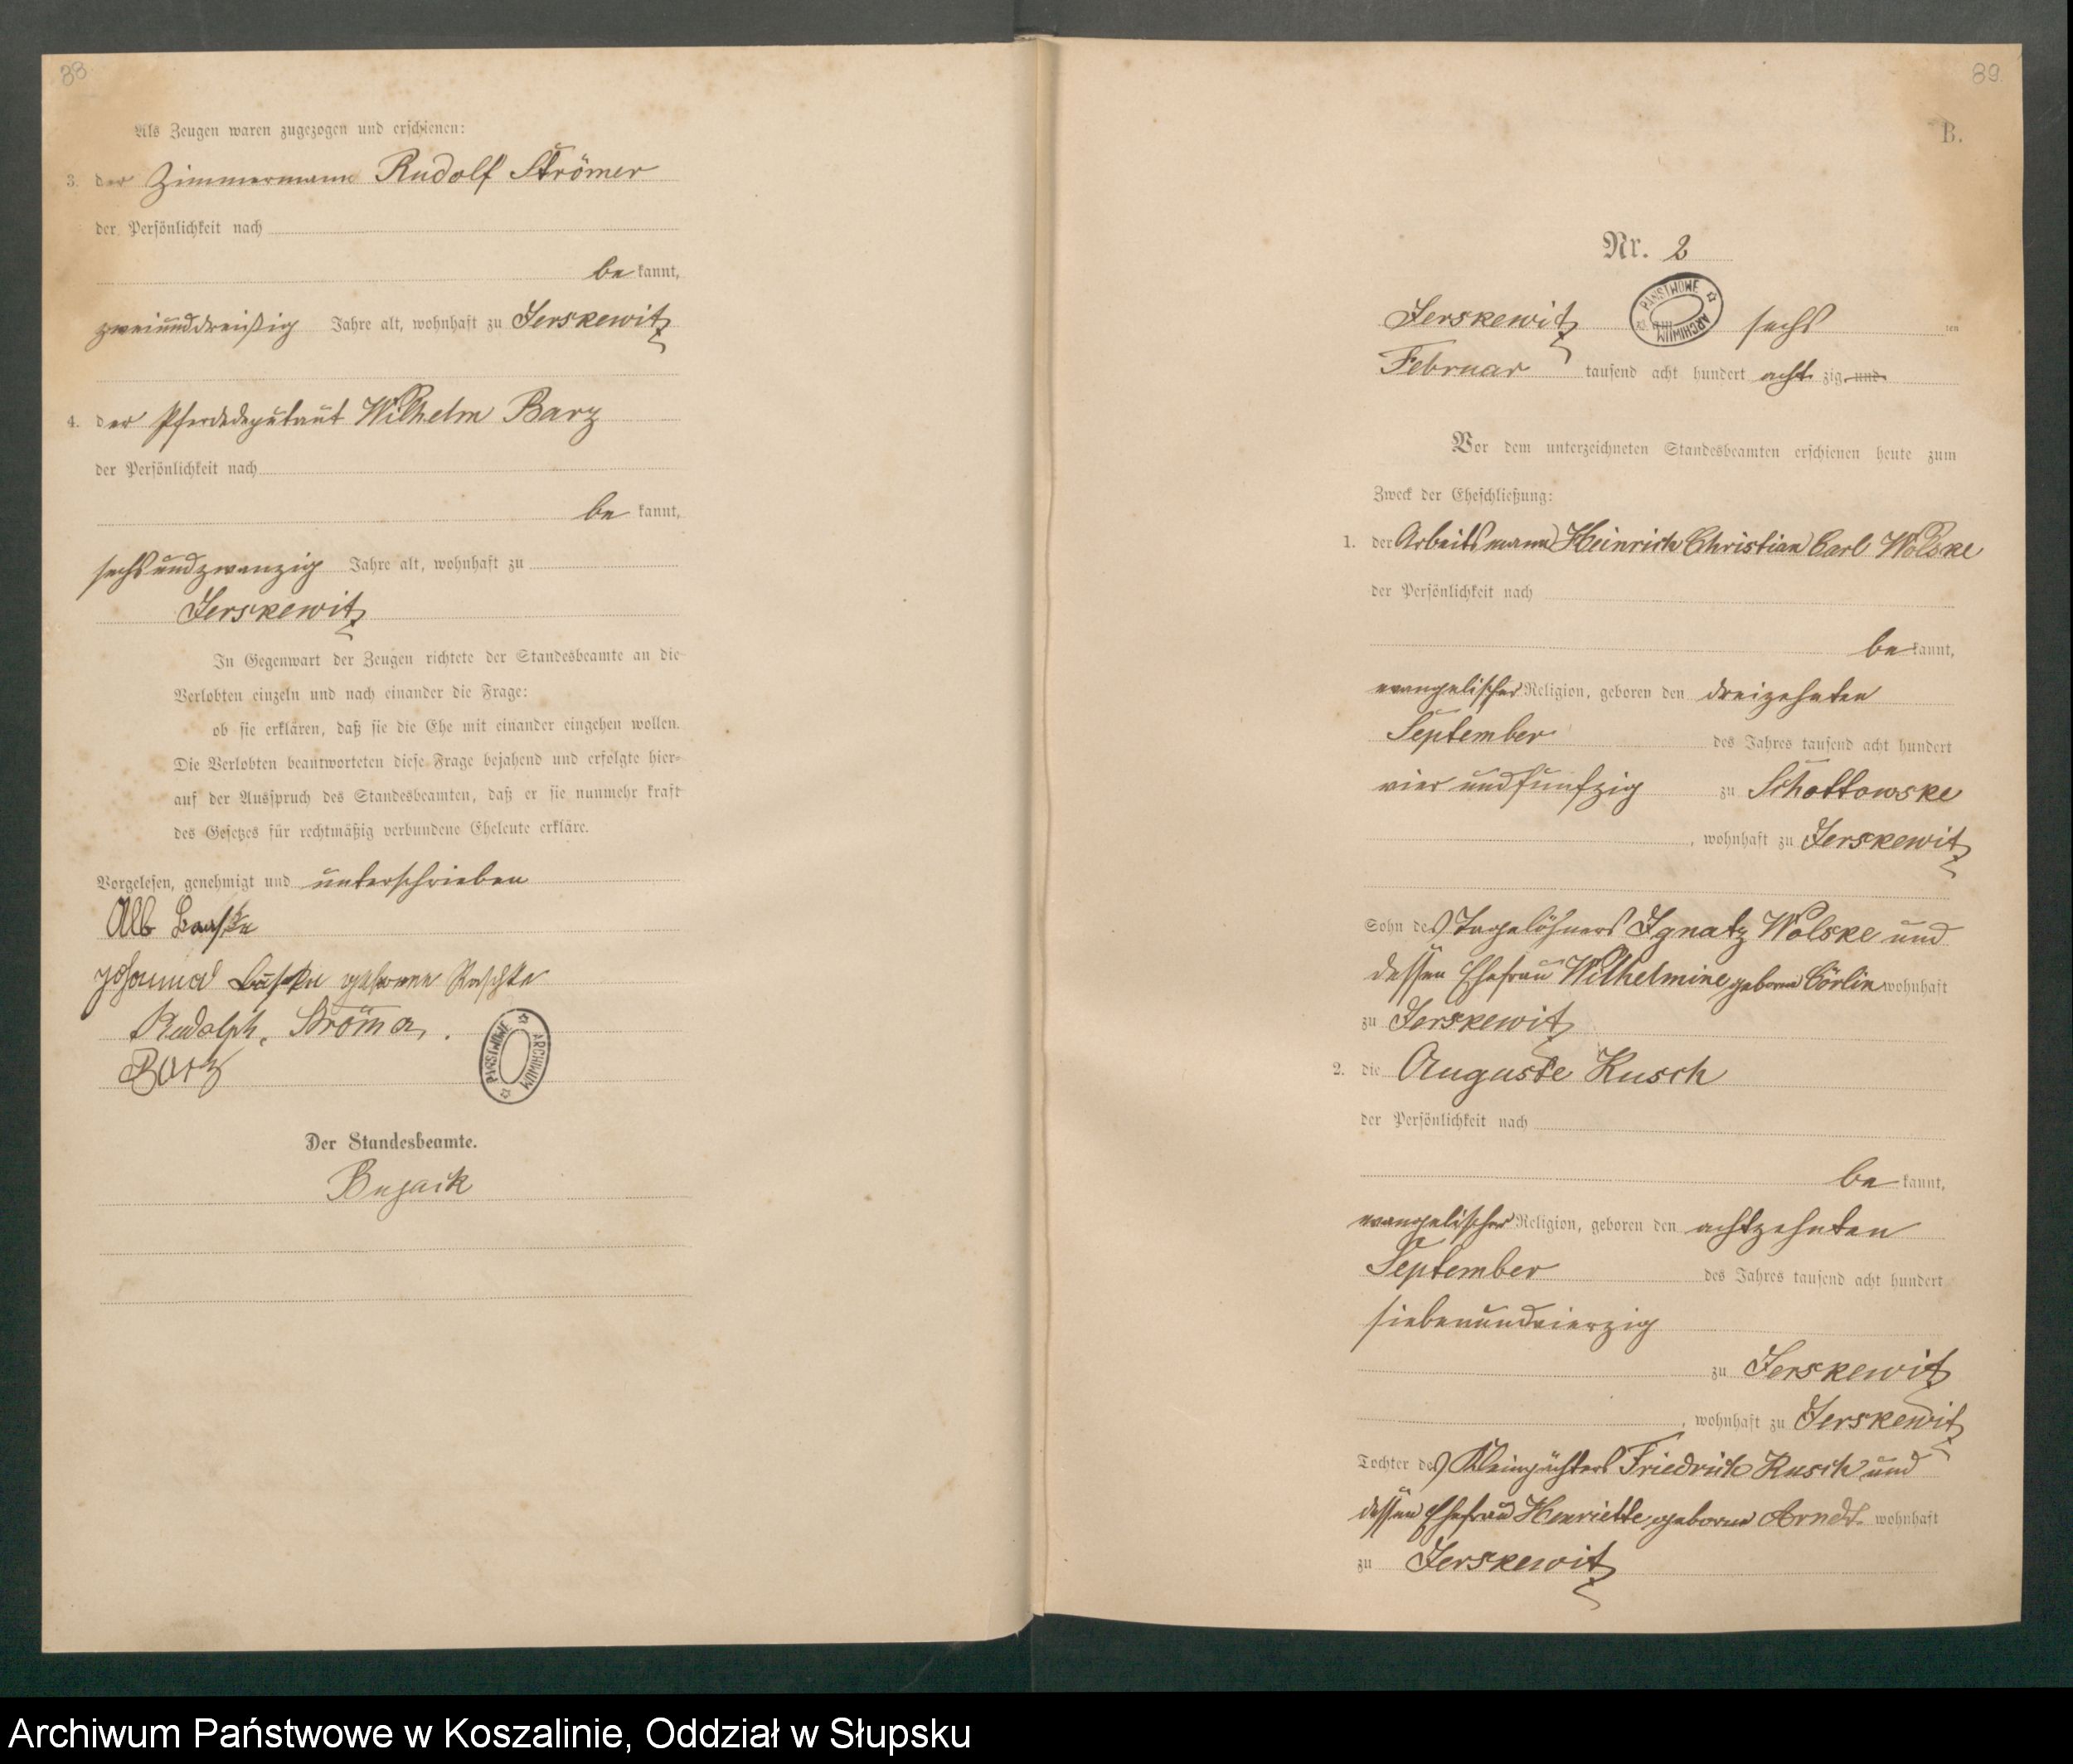 88.
Als Zeugen waren zugezogen und erschienen:
3. der Zimmermann Rudolf Strömer
der Persönlichkeit nach
be kannt,
zweiunddreißig Jahre alt, wohnhaft zu Jerskewitz
4. der Pferdedeputant Wilhelm Barz
der Persönlichkeit nach
be kannt,
sechsundzwanzig Jahre alt, wohnhaft zu
Jerskewitz
In Gegenwart der Zeugen richtete der Standesbeamte an die
Verlobten einzeln und nach einander die Frage:
ob sie erklären, daß sie die Ehe mit einander eingehen wollen.
Die Verlobten beantworteten diese Frage bejahend und erfolgte hier-
auf der Ausspruch des Standesbeamten, daß er sie nunmehr kraft
des Gesetzes für rechtmäßig verbundene Eheleute erkläre.
Vorgelesen, genehmigt und unterschrieben
Alb
Johanna geborene
Rudolph, Ströma.
Barz
PAŃSTWOWE ARCHIWUM
Der Standesbeamte.
Bujack
89.
B.
Nr. 2
Jerskewitz sechs ten
PAŃSTWOWE ARCHIWUM
Februar tausend acht hundert acht zig und
Vor dem unterzeichneten Standesbeamten erschienen heute zum
Zweck der Eheschließung:
1. der Arbeitsmann Heinrich Christian Carl Wolske
der Persönlichkeit nach
be kannt,
evangelischer Religion, geboren den dreizehnten
September des Jahres tausend acht hundert
vier und fünfzig zu Schottowske
, wohnhaft zu Jerskewitz
Sohn des Tagelöhners Ignatz Wolske und
dessen Ehefrau Wilhelmine geborne Cörlin wohnhaft
zu Jerskewitz
2. die Auguste Kusch
der Persönlichkeit nach
be kannt,
evangelischer Religion, geboren den achtzehnten
September des Jahres tausend acht hundert
siebenundvierzig
zu Jerskewitz
, wohnhaft zu Jerskewitz
Tochter des Kleinpächters Friedrich Kusch und
dessen Ehefrau Henriette geborne Arndt wohnhaft
zu Jerskewitz
Archiwum Państwowe w Koszalinie, Oddział w Słupsku